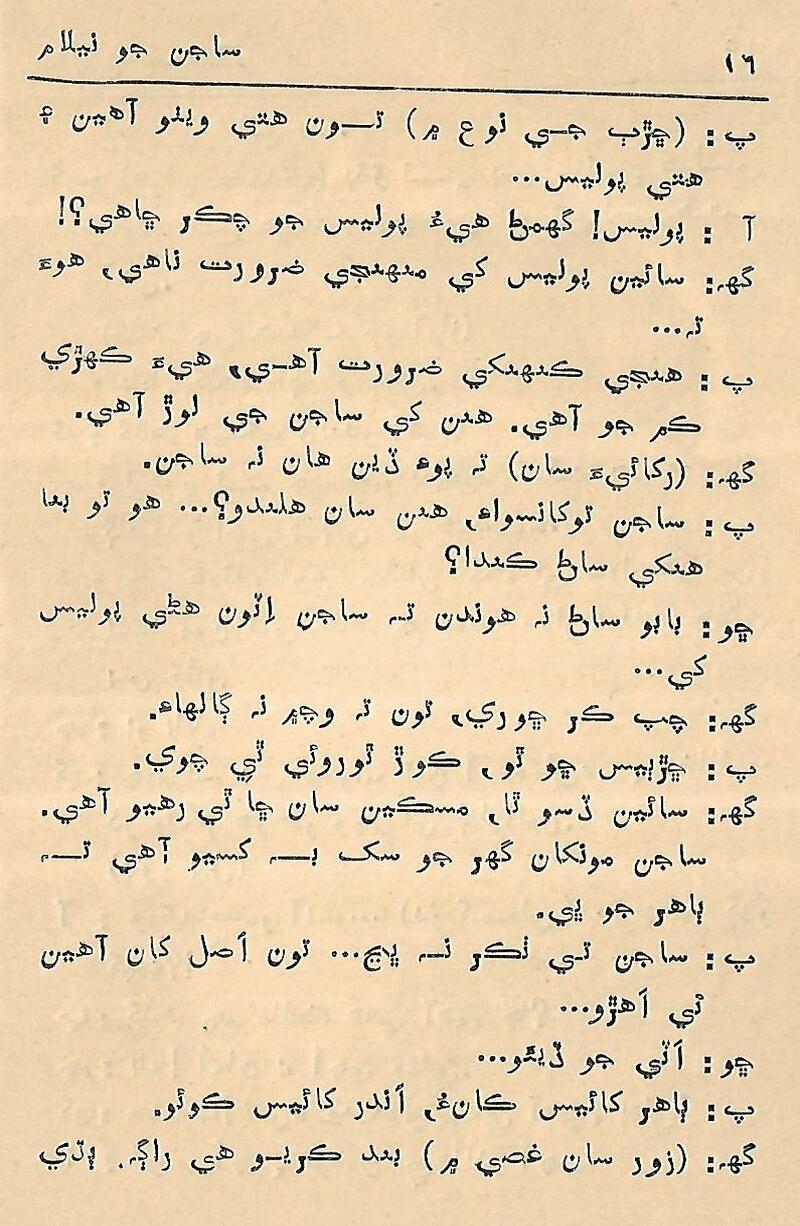 ١٦ ساجن جو نيلام
پ : (چڙٻ جي نوع ۾) تون هتي ويٺو آهين ۽
هتي پوليس...
آ : پوليس! گهمڻ هيءُ پوليس جو چڪر ڇاهي؟!
گهہ: سائين پوليس کي منهنجي ضرورت ناهي، هوءَ
تہ...
پ : هنجي ڪنهنکي ضرورت آهي، هيءَ ڪهڙي
ڪم جو آهي. هنن کي ساجن جي لوڙ آهي.
گهہ: (رکائيءَ سان) تہ پوءِ ڏين هان نہ ساجن.
پ : ساجن توکانسواءِ، هنن سان هلندو؟... هو تو بنا
هنکي ساڻ ڪندا؟
ڇو : بابو ساڻ نہ هوندن تہ ساجن اِٽون هڻي پوليس
کي...
گهہ: چپ ڪر ڇوري، تون تہ وچ۾ نہ ڳالهاءِ.
پ : ڇڙٻيس ڇو ٿو، ڪوڙ ٿوروئي ٿي چوي.
گهہ: سائين ڏسو ٿا، مسڪين سان ڇا ٿي رهيو آهي.
ساجن مونکان گهر جو سک بہ کسيو آهي تہ
ٻاهر جو ڀي.
پ : ساجن تي ٺڪر نہ ڀڃ... تون اَصل کان آهين
ئي اَهڙو...
ڇو : اَٽي جو ڏيئو...
پ : ٻاهر کائيس ڪانءُ، اَندر کائيس ڪوئو.
گهہ: (زور سان غصي ۾) بند ڪريو هي راڳہ. ٻڌي